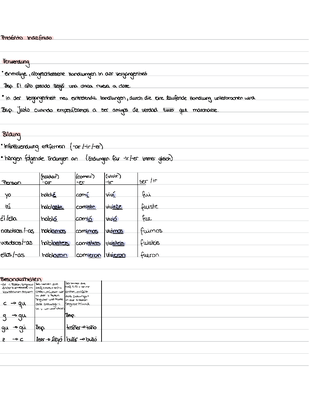 Pretérito Indefinido
Verwendung
• einmalige, abgeschlossene Handlungen in der Vergangenheit
Bsp. El año pasado llegó una chica nueva a clase.
• in der Vergangenheit neu eintretende Handlungen, durch die eine laufende Handlung unterbrochen wird
Bsp. Justo cuando empezábamos a ser amigos de verdad tuvo que marcharse.
Bildung
• Infinitivendung entfernen (-ar/-ir/-er)
• hängen folgende Endungen an (Endungen für -ir/-er immer gleich)
(hablar) (comer) (vivir)
Person -ar -er -ir ser/ir
yo hablé comí viví fui
tú hablaste comiste viviste fuiste
él/ella habló comió vivió fue
nosotros/-as hablamos comimos vivimos fuimos
vosotros/-as hablasteis comisteis vivisteis fuisteis
ellos/-as hablaron comieron vivieron fueron
Besonderheiten
c → qu
g → gu Bsp.
gu → gü Bsp. tañer → tañó
z → c leer → leyó bullir → bulló